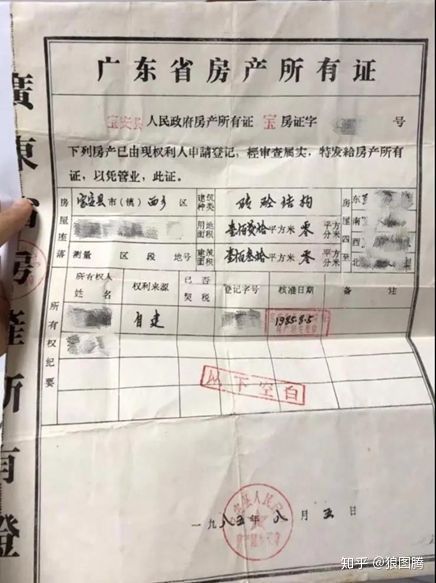 广东省房产所有证
宝安县人民政府房产所有证 宝 房证字 号
下列房产已由现权利人申請登记，經审查属实，特发給房产所有
证，以凭管业，此证。
房屋座落 宝安县市（鎮）西乡 区 建筑种类 砖砼结构 房屋四至 东
用地面积 平方米 零 平方分米 南
西
测量 区 段 地号 建筑面积 平方米 零 平方分米 北
所有权纪要 所有权人姓名 权利来源 已否契税 登记字号 核准日期 备注
自建 1985.8.5
以下空白
一九八五年八月五日
廣東省房產所有證
知乎 @狼图腾